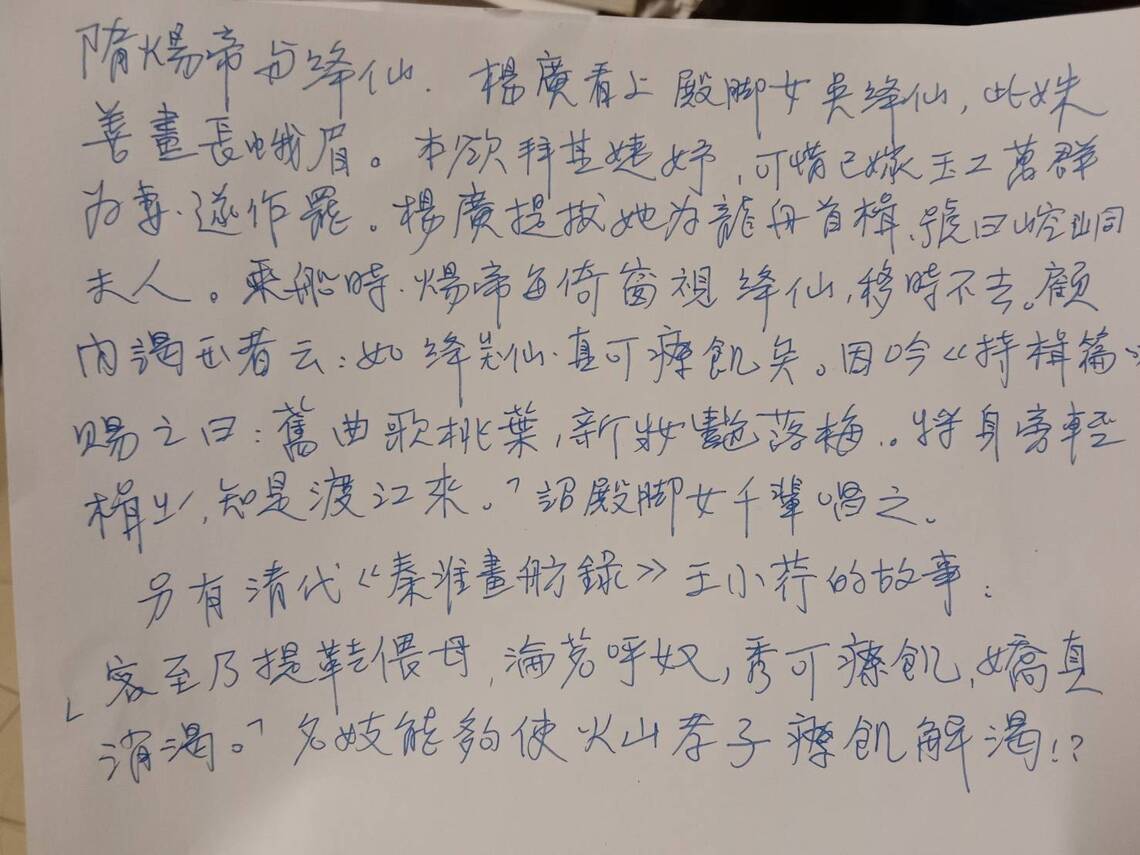 隋煬帝与绛仙. 楊廣看上殿脚女吳绛仙, 此姝
善畫長蛾眉。本欲拜其婕妤, 可惜已嫁玉工萬群
为妻. 遂作罷。楊廣提拔她为龍舟首楫、號曰崆峒
夫人。乘船時. 煬帝每倚窗視绛仙, 移時不去。顧
内謁者云: 如绛仙. 真可療飢矣。因吟《持楫篇》
賜之曰: 舊曲歌桃葉, 新妝艷落梅.。將身旁輕
楫, 知是渡江來。」詔殿脚女千輩唱之。
另有清代《秦淮畫舫錄》王小荇的故事:
「客至乃提鞋偎母, 瀹茗呼奴, 秀可療飢, 嬌真
消渴。」名妓能夠使火山孝子療飢解渴!?